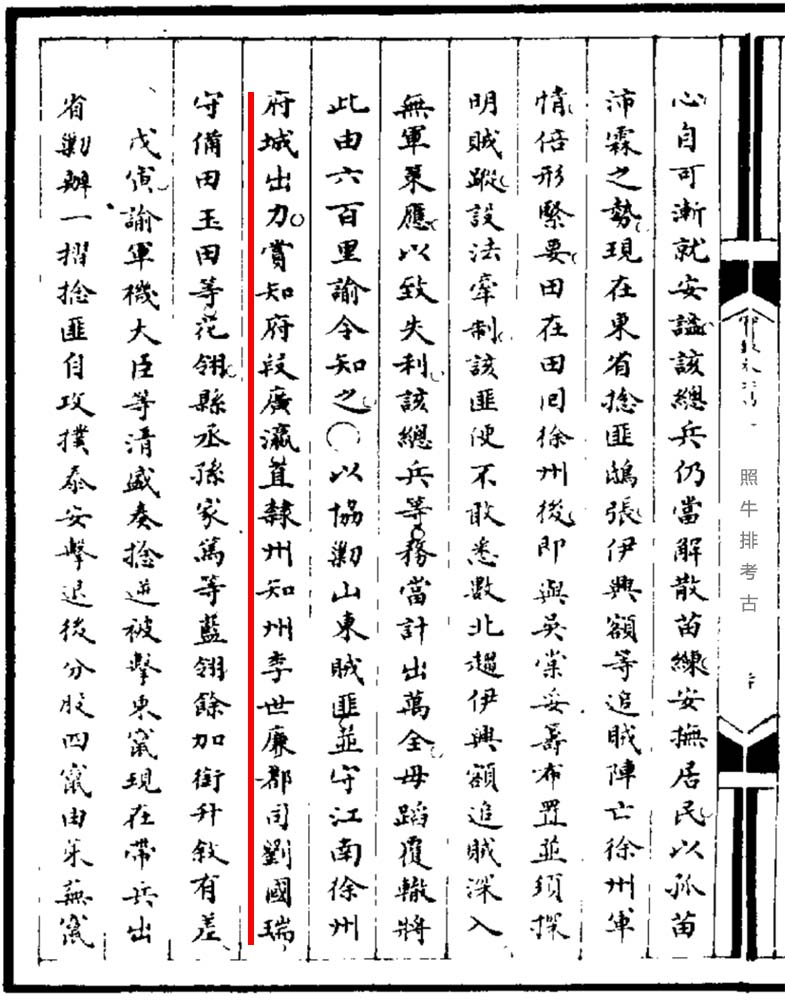 心自可漸就安謐該總兵仍當解散苗練安撫居民以孤苗
沛霖之勢現在東省捻匪鴟張伊興額等追賊陣亡徐州軍
情倍形緊要田在田回徐州後即與吳棠妥籌布置並須探
明賊蹤設法牽制該匪使不敢悉數北趨伊興額追賊深入
無軍策應以致失利該總兵等務當計出萬全毋蹈覆轍將
此由六百里諭令知之○以協勦山東賊匪並守江南徐州
府城出力賞知府段廣瀛直隸州知州李世廉都司劉國瑞
守備田玉田等花翎縣丞孫家篤等藍翎餘加銜升敘有差
戊寅諭軍機大臣等清盛奏捻逆被擊東竄現在帶兵出
省勦辦一摺捻匪自攻撲泰安擊退後分股四竄由萊蕪竄
照牛排考古